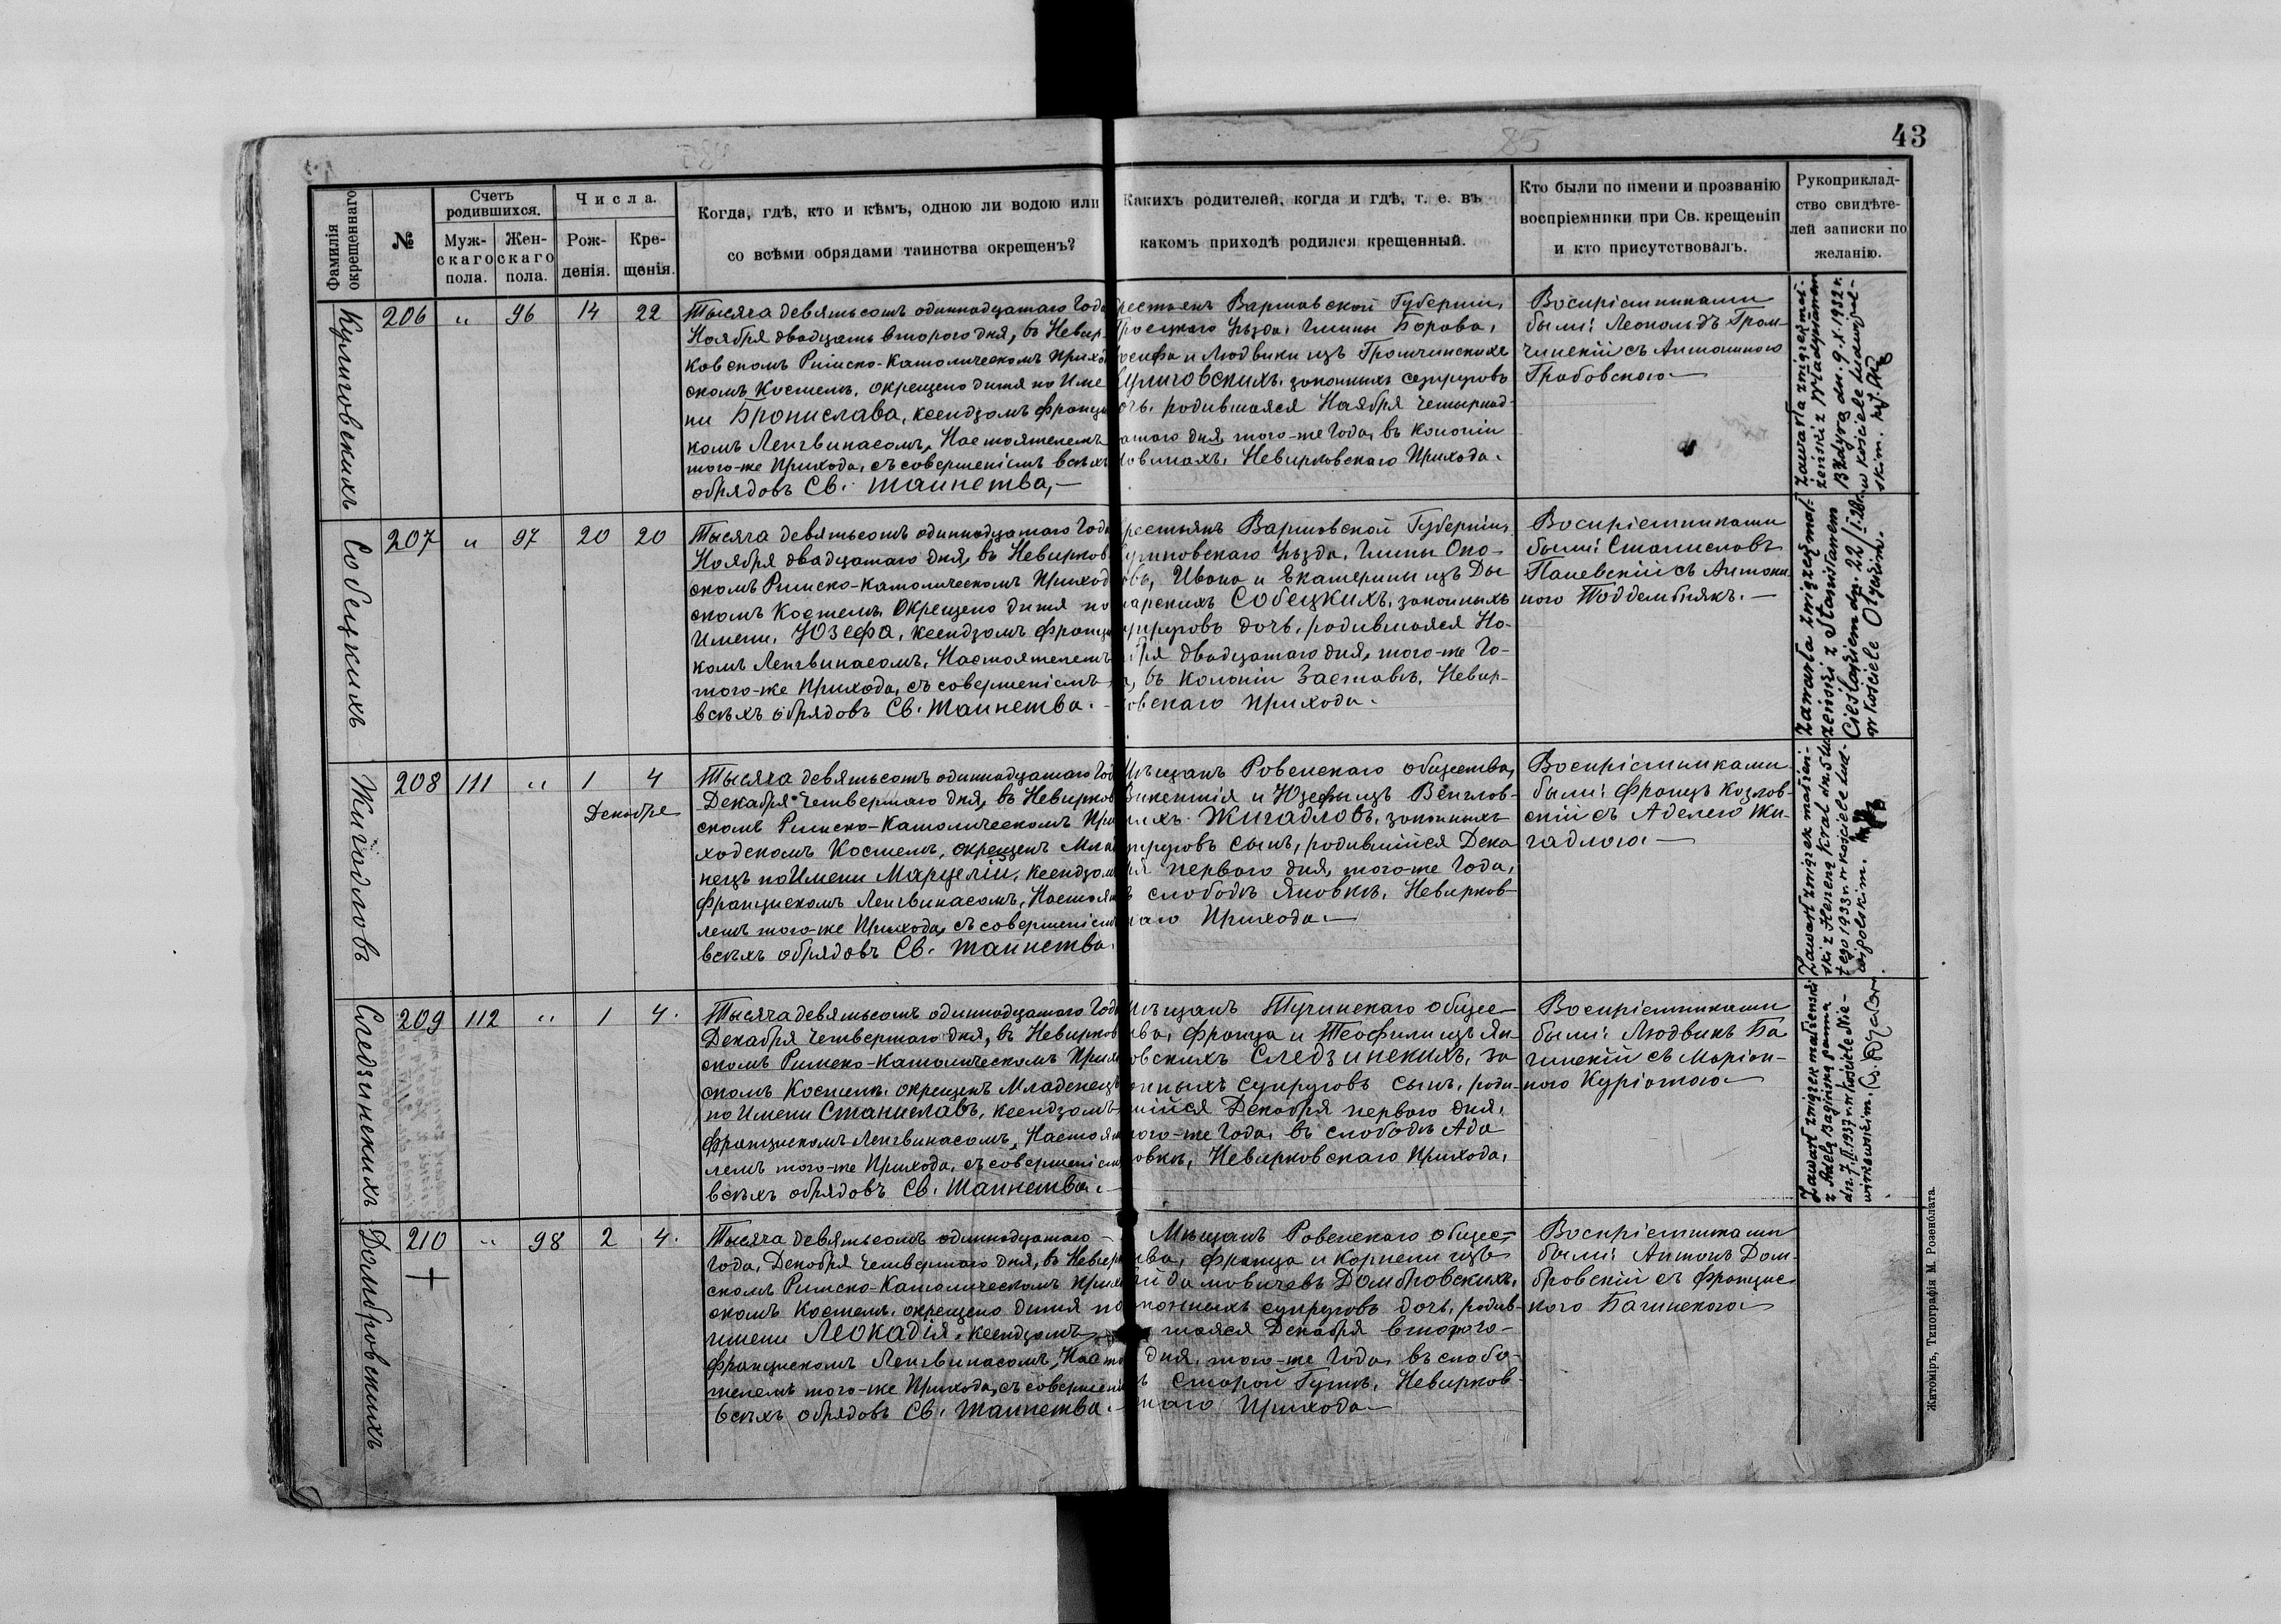 43
85
Фамилія окрещеннаго
№
Счетъ родившихся.
Мужскаго пола.
Женскаго пола.
Числа.
Рожденія.
Крещенія.
Когда, гдѣ, кто и кѣмъ, одною ли водою или
со всѣми обрядами таинства окрещенъ?
Какихъ родителей, когда и гдѣ, т. е. въ
какомъ приходѣ родился крещенный.
Кто были по имени и прозванію
воспріемники при Св. крещеніи
и кто присутствовалъ.
Рукоприклад-
ство свидѣте-
лей записки по
желанію.
Кулиговскихъ
206 " 96 14 22
Тысяча девятьсотъ одиннадцатаго Года
Ноября двадцать второго дня, въ Невир-
ковскомъ Римско-Католическомъ Приход
скомъ Костелѣ, окрещено дитя по Име
ни Бронислава, ксендзомъ Францис
комъ Ленгвинасомъ, Настоятелемъ
того-же Прихода, съ совершеніемъ всѣхъ
обрядовъ Св. Таинства,—
Крестьянъ Варшавской Губерніи,
Гроецкаго Уѣзда, Гмины Борова,
Іосифа и Людвики изъ Громчинскихъ
Кулиговскихъ, законныхъ супруговъ
дочь, родившаяся Ноября четырнад-
цатаго дня, того-же Года, въ колоніи
Невирковскаго Прихода.
Воспріемниками
были: Леопольдъ Гром-
чинскій съ Антониною
Грабовскою—
Zawarła związek mał-
żeński z Władysławem
dn. 9.X.1932 r.
w kościele Ludwipol-
skim.
Собецкихъ
207 " 97 20 20
Тысяча девятьсотъ одиннадцатаго Года
Ноября двадцатаго дня, въ Невирков
скомъ Римско-Католическомъ Приход
скомъ Костелѣ, Окрещено дитя по
Имени, Юзефа, ксендзомъ Францис
комъ Ленгвинасомъ, Настоятелемъ
того-же Прихода, съ совершеніемъ
всѣхъ обрядовъ Св. Таинства.—
Крестьянъ Варшавской Губерніи,
Уѣзда, Гмины Опо-
Ивана и Екатерины изъ Ды
Собецкихъ, законныхъ
супруговъ дочь, родившаяся Но-
ября двадцатаго дня, того-же Го-
да, въ колоніи Заставѣ, Невир-
ковскаго прихода.
Воспріемниками
были: Станиславъ
Паневскій съ Антони
ною Поддембнякъ.—
Zawarła związek mał-
żeński z Stanisławem
Cieślakiem dn. 22/I.28 r.
w Kościele
Жигадловъ
208 111 " 1 4
Декабря
Тысяча девятьсотъ одиннадцатаго Года
Декабря четвертаго дня, въ Невирков
скомъ Римско-Католическомъ При
ходскомъ Костелѣ, окрещенъ Мла
нецъ по Имени Марцелій, ксендзомъ
Францискомъ Ленгвинасомъ, Настоят
лемъ того-же Прихода, съ совершеніемъ
всѣхъ обрядовъ Св. Таинства.
Мѣщанъ Ровенскаго общества,
Викентія и Юзефы изъ Венглов-
скихъ Жигадловъ, законныхъ
супруговъ сынъ, родившійся Дека
бря первого дня, того-же Года,
въ слободѣ Яновкѣ, Невирков-
скаго Прихода.—
Воспріемниками
были: Францъ Козлов-
скій съ Аделею Жи-
гадлою.—
Zawarł związek małżeń-
ski z Heleną Kral dn. 5 lu-
tego 1933 r. w kościele Lud-
wipolskim.
Следзинскихъ
209 112 " 1 4.
Тысяча девятьсотъ одиннадцатаго Года
Декабря четвертаго дня, въ Невирков
скомъ Римско-Католическомъ Приход
скомъ Костелѣ окрещенъ Младенецъ
по Имени Станиславъ, ксендзомъ
Францискомъ Ленгвинасомъ, Настоят
лемъ того-же Прихода, съ совершеніемъ
всѣхъ обрядовъ Св. Таинства.—
Мѣщанъ Тучинскаго общес-
тва, Франца и Теофили изъ Ян
ковскихъ Следзинскихъ, за
конныхъ супруговъ сынъ, роди-
вшійся Декабря первого дня,
того-же Года, въ слободѣ Ада
мовкѣ, Невирковскаго Прихода,
Воспріемниками
были: Людвикъ Ба
гинскій съ Маріан-
ною Куріатою—
Zawarł związek małżeński
z Adelą Bagińską panną
dn. 7.II.1937 r. w Kościele Nie-
wirkowskim.
Домбровскихъ
210 " 98 2 4.
Тысяча девятьсотъ одиннадцатаго —
Года, Декабря четвертаго дня, въ Невирк
скомъ Римско-Католическомъ Приход
скомъ Костелѣ, окрещено дитя по
имени Леокадія, ксендзомъ
Францискомъ Ленгвинасомъ, Насто
телемъ того-же Прихода, съ совершеніе
всѣхъ обрядовъ Св. Таинства.—
Мѣщанъ Ровенскаго общес-
тва, Франца и Корнели изъ
Домбровскихъ,
законныхъ супруговъ дочь, родив-
шаяся Декабря второго-
дня, того-же Года, въ слобо-
дѣ Старой Гутѣ, Невирков-
скаго Прихода—
Воспріемниками
были: Антонъ Дом-
бровскій съ Францис
кою Багинскою
Житоміръ, Типографія М. Розенблата.